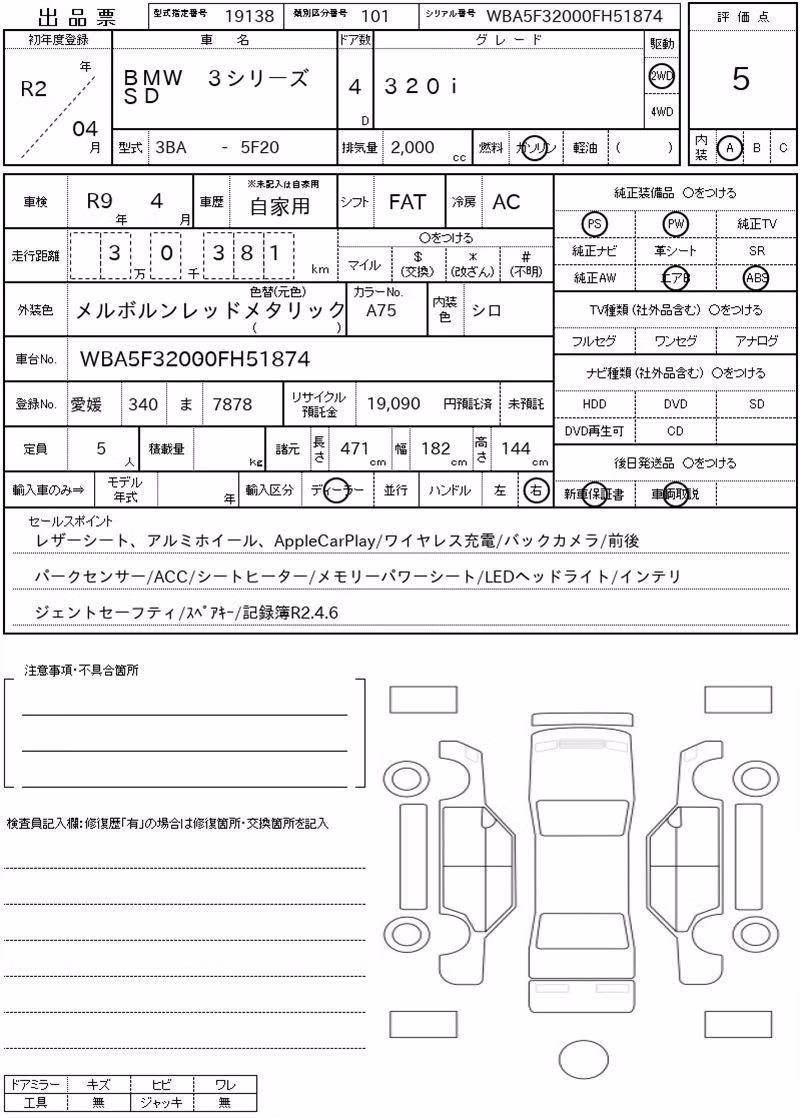 出品票 型式指定番号 19138 類別区分番号 101 シリアル番号 WBA5F32000FH51874
評価点
5
内装 A B C
初年度登録 車名 ドア数 グレード 駆動
R2 年 04 月
BMW 3シリーズ
SD
4 D
320i
2WD
4WD
型式 3BA - 5F20 排気量 2,000 cc 燃料 ガソリン 軽油 ( )
車検 R9 年 4 月 車歴 ※未記入は自家用 自家用 シフト FAT 冷房 AC
走行距離 3 万 0 千 381 km
○をつける
マイル $(交換) *(改ざん) #(不明)
外装色 メルボルンレッドメタリック 色替(元色) ( ) カラーNo. A75 内装色 シロ
車台No. WBA5F32000FH51874
登録No. 愛媛 340 ま 7878 リサイクル預託金 19,090 円預託済 未預託
定員 5 人 積載量 kg 諸元 長さ 471 cm 幅 182 cm 高さ 144 cm
輸入車のみ⇒ モデル年式 年 輸入区分 ディーラー 並行 ハンドル 左 右
純正装備品 ○をつける
PS PW 純正TV
純正ナビ 革シート SR
純正AW エアB ABS
TV種類(社外品含む) ○をつける
フルセグ ワンセグ アナログ
ナビ種類(社外品含む) ○をつける
HDD DVD SD
DVD再生可 CD
後日発送品 ○をつける
新車保証書 車両取説
セールスポイント
レザーシート、アルミホイール、AppleCarPlay/ワイヤレス充電/バックカメラ/前後
パークセンサー/ACC/シートヒーター/メモリーパワーシート/LEDヘッドライト/インテリ
ジェントセーフティ/ｽﾍﾟｱｷｰ/記録簿R2.4.6
注意事項・不具合箇所
検査員記入欄:修復歴「有」の場合は修復箇所・交換箇所を記入
ドアミラー キズ ヒビ ワレ
工具 無 ジャッキ 無